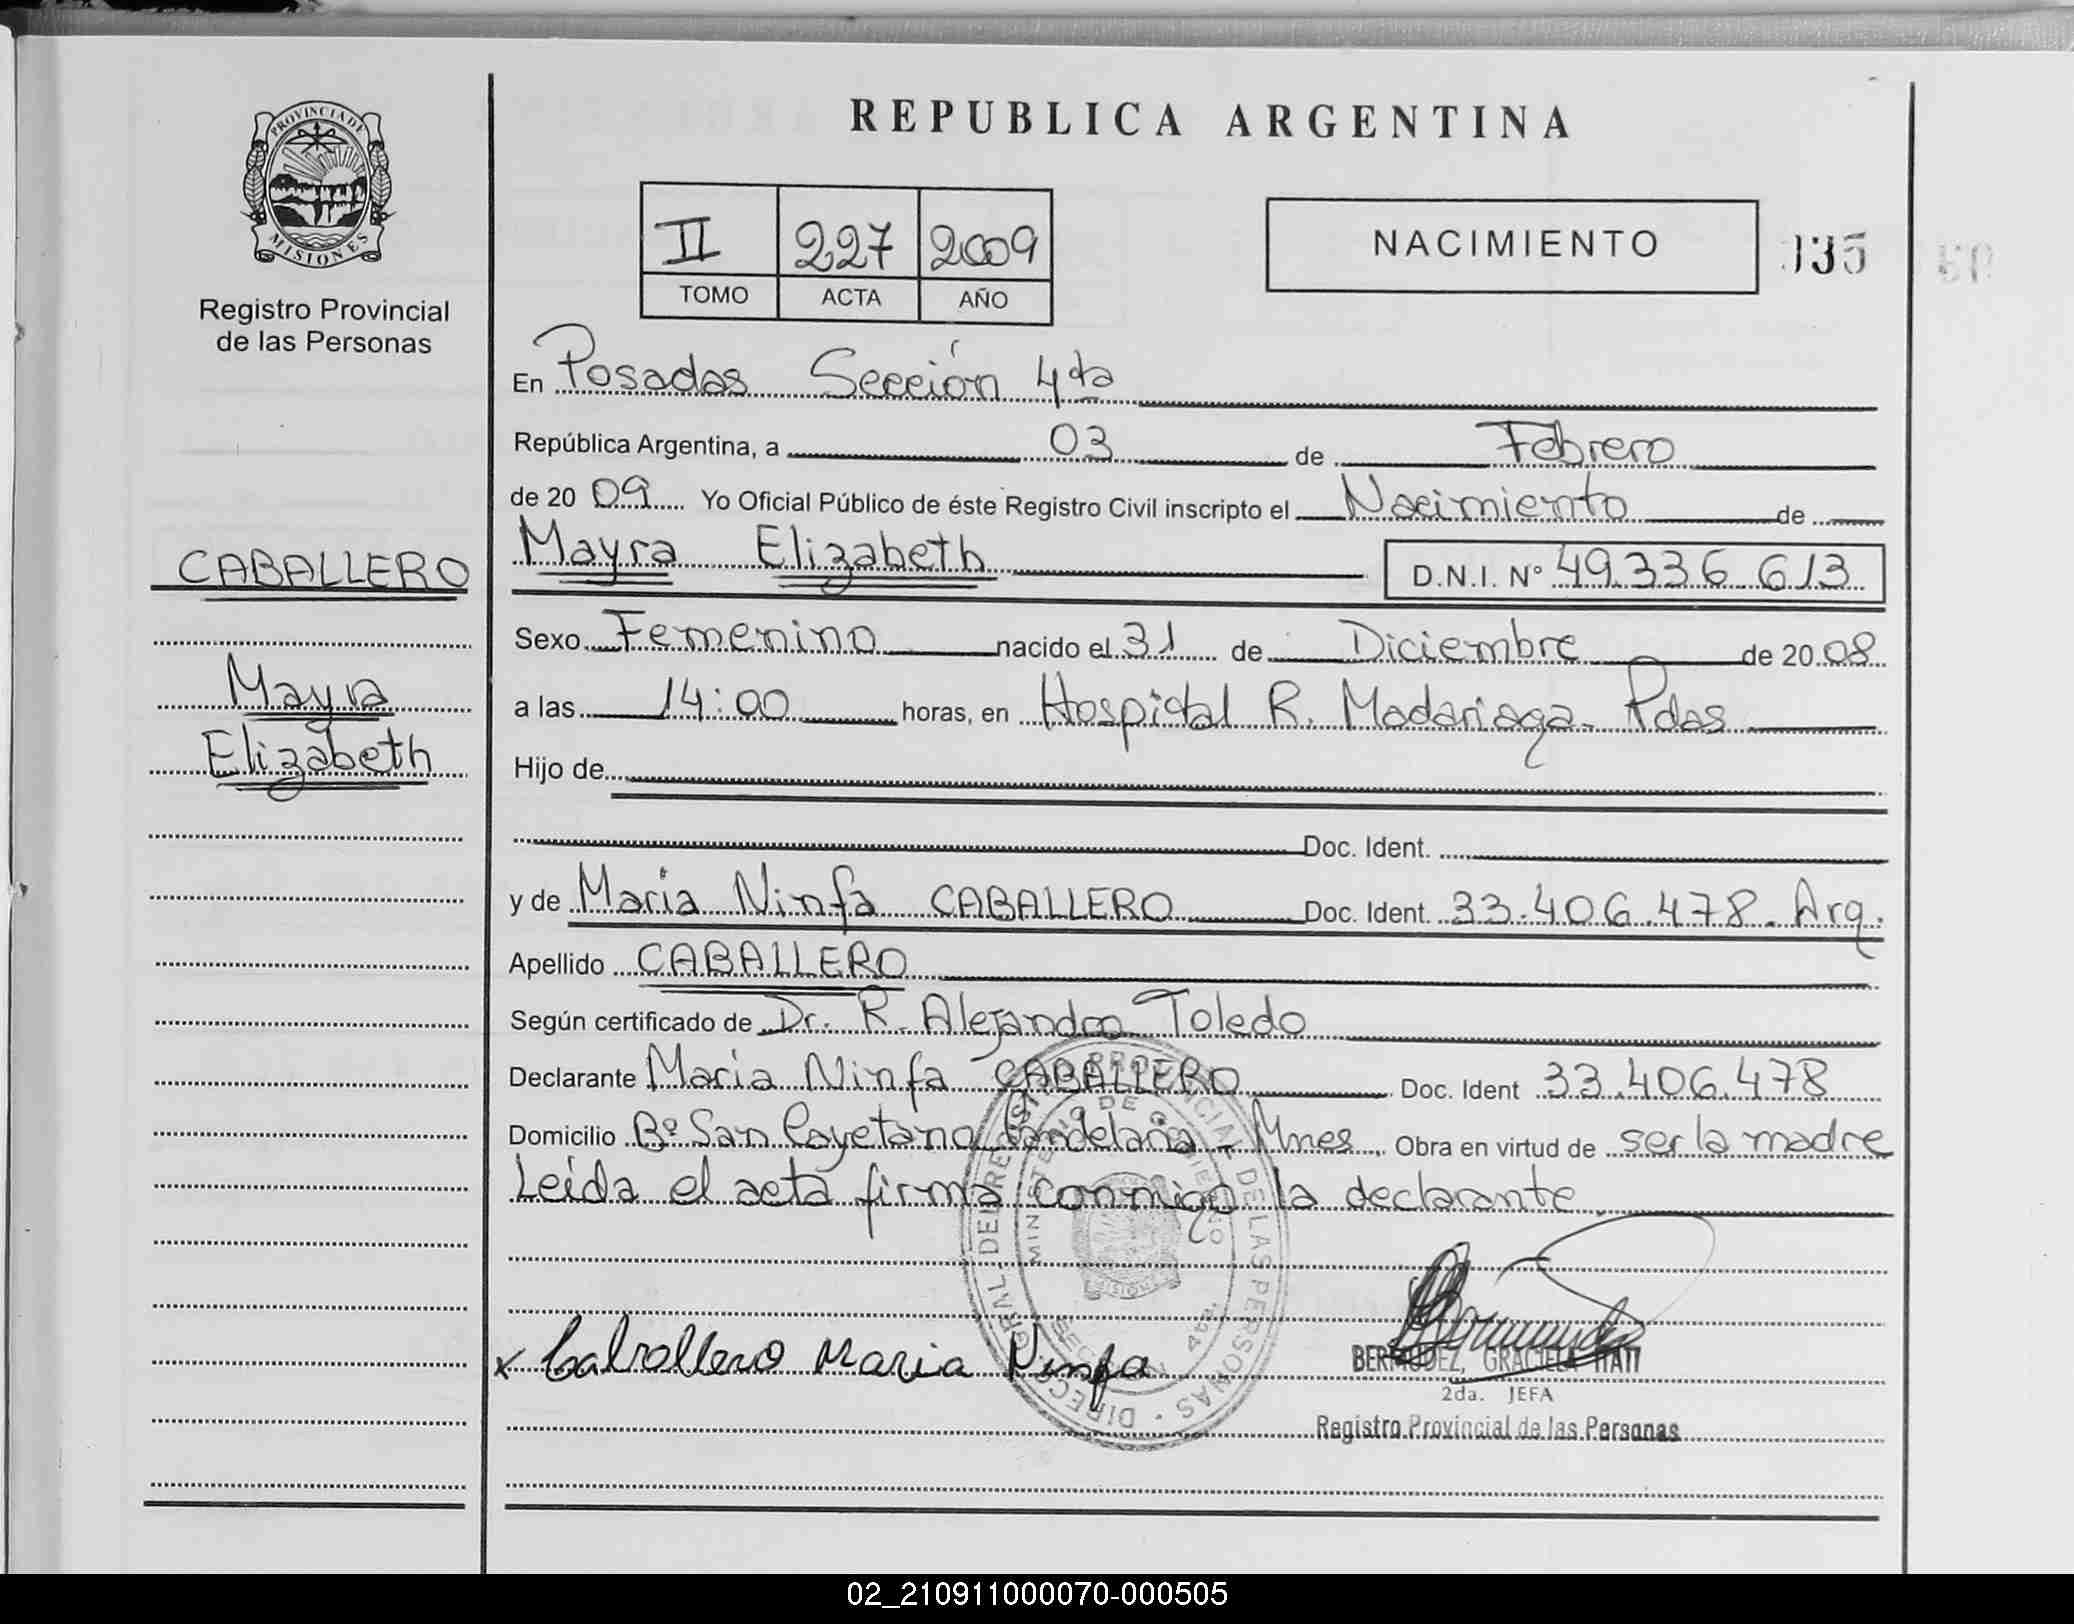 REPUBLICA ARGENTINA
PROVINCIA DE
MISIONES
Registro Provincial
de las Personas
II 227 2009
TOMO ACTA AÑO
NACIMIENTO
135
En Posadas Sección 4ta
República Argentina, a 03 de Febrero
de 20 09 Yo Oficial Público de éste Registro Civil inscripto el Nacimiento de
CABALLERO
Mayra Elizabeth D.N.I. N° 49.336.613
Sexo Femenino nacido el 31 de Diciembre de 20 08
Mayra
a las 14:00 horas, en Hospital R. Madariaga- Pdas
Elizabeth
Hijo de
Doc. Ident.
y de Maria Ninfa CABALLERO Doc. Ident. 33.406.478. Arg.
Apellido CABALLERO
Según certificado de Dr. R. Alejandro Toledo
Declarante Maria Ninfa CABALLERO Doc. Ident 33.406.478
Domicilio Bº San Cayetano Candelaria - Mnes. Obra en virtud de ser la madre
Leída el acta firma conmigo la declarante
x Caballero Maria Ninfa
BERMUDEZ, GRACIELA ITATI
2da. JEFA
Registro Provincial de las Personas
02_210911000070-000505